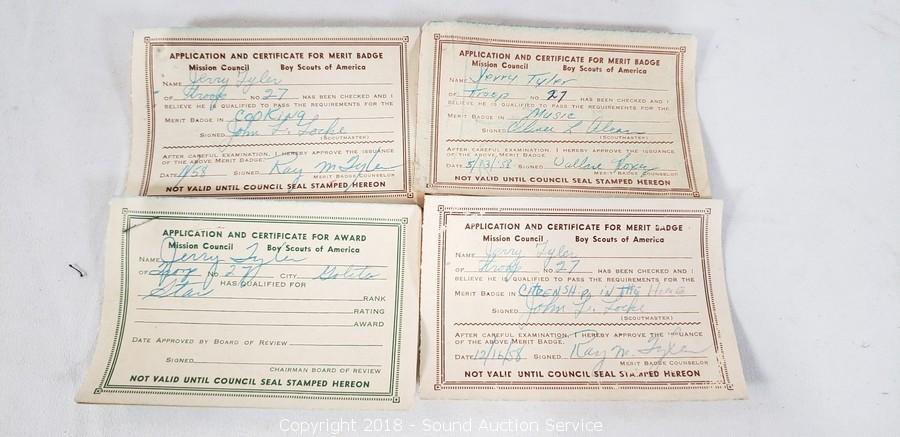 APPLICATION AND CERTIFICATE FOR MERIT BADGE
Mission Council Boy Scouts of America
NAME Jerry Tyler
OF Troop NO. 27 HAS BEEN CHECKED AND I
BELIEVE HE IS QUALIFIED TO PASS THE REQUIREMENTS FOR THE
MERIT BADGE IN COOKING
SIGNED John L. Locke
(SCOUTMASTER)
AFTER CAREFUL EXAMINATION, I HEREBY APPROVE THE ISSUANCE
OF THE ABOVE MERIT BADGE.
DATE SIGNED Ray M. Tyler
MERIT BADGE COUNSELOR
NOT VALID UNTIL COUNCIL SEAL STAMPED HEREON
APPLICATION AND CERTIFICATE FOR MERIT BADGE
Mission Council Boy Scouts of America
NAME Jerry Tyler
OF Troop NO. 27 HAS BEEN CHECKED AND I
BELIEVE HE IS QUALIFIED TO PASS THE REQUIREMENTS FOR THE
MERIT BADGE IN MUSIC
SIGNED
(SCOUTMASTER)
AFTER CAREFUL EXAMINATION, I HEREBY APPROVE THE ISSUANCE
OF THE ABOVE MERIT BADGE.
DATE SIGNED Wallace
MERIT BADGE COUNSELOR
NOT VALID UNTIL COUNCIL SEAL STAMPED HEREON
APPLICATION AND CERTIFICATE FOR AWARD
Mission Council Boy Scouts of America
NAME Jerry Tyler
OF NO. 27 CITY Goleta
HAS QUALIFIED FOR
Star RANK
RATING
AWARD
DATE APPROVED BY BOARD OF REVIEW
SIGNED
CHAIRMAN BOARD OF REVIEW
NOT VALID UNTIL COUNCIL SEAL STAMPED HEREON
APPLICATION AND CERTIFICATE FOR MERIT BADGE
Mission Council Boy Scouts of America
NAME Jerry Tyler
OF Troop NO. 27 HAS BEEN CHECKED AND I
BELIEVE HE IS QUALIFIED TO PASS THE REQUIREMENTS FOR THE
MERIT BADGE IN CITIZENSHIP IN THE HOME
SIGNED John L. Locke
(SCOUTMASTER)
AFTER CAREFUL EXAMINATION, I HEREBY APPROVE THE ISSUANCE
OF THE ABOVE MERIT BADGE.
DATE 12/16/58 SIGNED Ray M. Tyler
MERIT BADGE COUNSELOR
NOT VALID UNTIL COUNCIL SEAL STAMPED HEREON
Copyright 2018 - Sound Auction Service